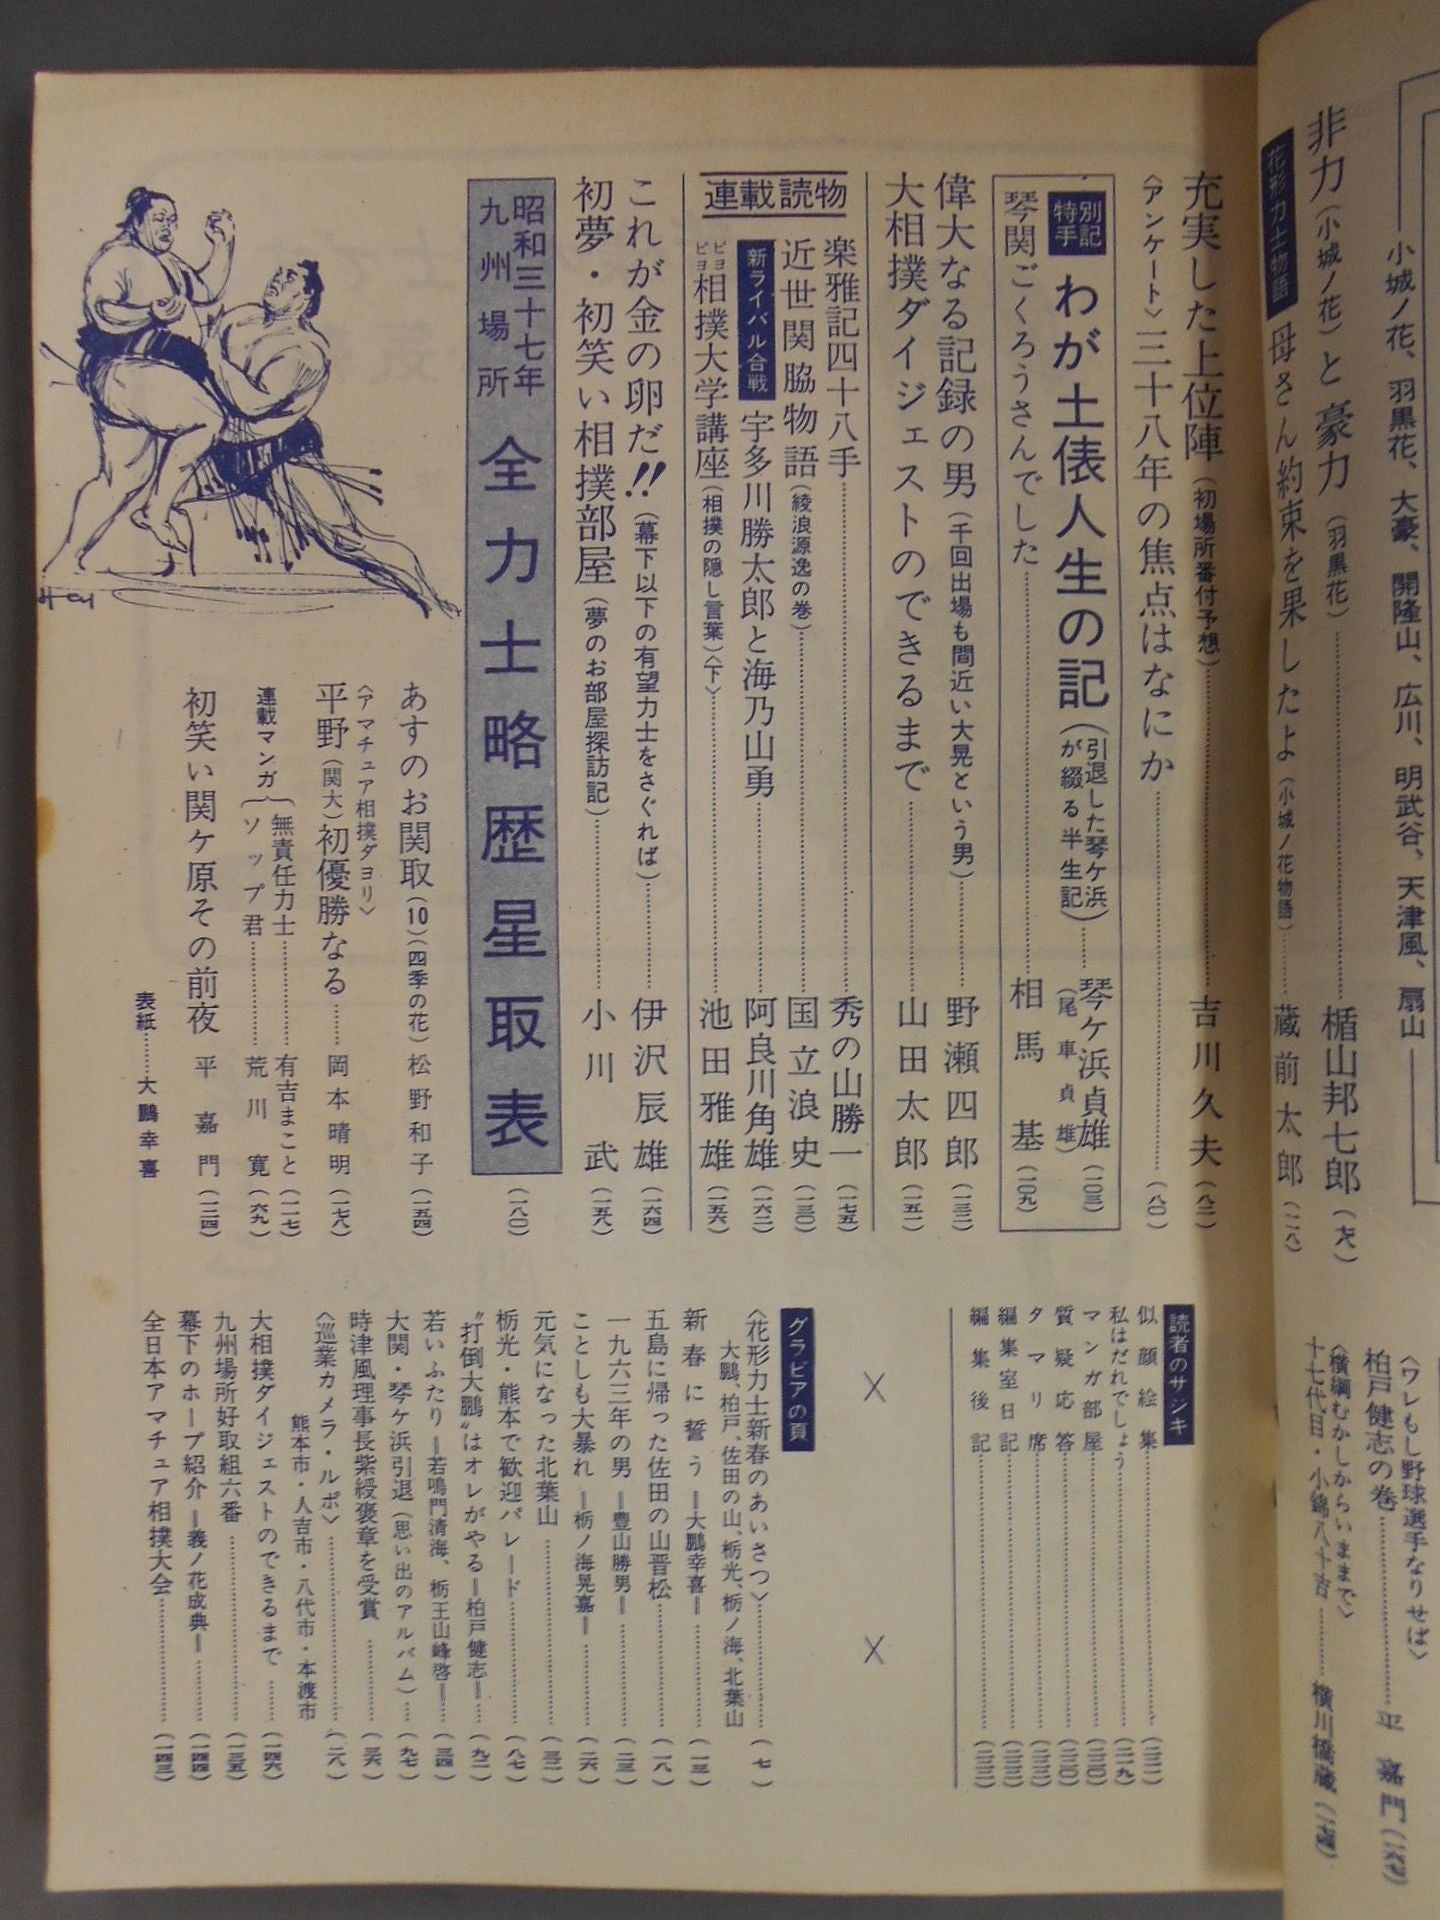 小城ノ花、羽黒花、大豪、開隆山、広川、明武谷、天津風、扇山
非力(小城ノ花)と豪力(羽黒花)……楯山邦七郎
花形力士物語 母さん約束を果したよ(小城ノ花物語)……蔵前太郎
〈ワレもし野球選手なりせば〉
柏戸健志の巻……平嘉門
〈横綱むかしからいままで〉
十七代目・小錦八十吉……横川橋蔵
充実した上位陣(初場所番付予想)……吉川久夫(八二)
〈アンケート〉三十八年の焦点はなにか……(八〇)
別記特手 わが土俵人生の記(引退した琴ケ浜が綴る半生記)……琴ケ浜貞雄(尾車貞雄)(一〇三)
琴関ごくろうさんでした……相馬基(一〇九)
偉大なる記録の男(千回出場も間近い大晃という男)……野瀬四郎(一三二)
大相撲ダイジェストのできるまで……山田太郎(一五一)
連載読物
楽雅記四十八手……秀の山勝一(一七五)
近世関脇物語(綾浪源逸の巻)……国立浪史(一三〇)
新ライバル合戦 宇多川勝太郎と海乃山勇……阿良川角雄(一六二)
ピヨピヨ相撲大学講座(相撲の隠し言葉)〈下〉……池田雅雄(一五六)
これが金の卵だ!!(幕下以下の有望力士をさぐれば)……伊沢辰雄(一六四)
初夢・初笑い相撲部屋(夢のお部屋探訪記)……小川武(一五八)
昭和三十七年九州場所 全力士略歴星取表(一八〇)
あすのお関取(10)(四季の花)松野和子(一五四)
〈アマチュア相撲ダヨリ〉
平野(関大)初優勝なる……岡本晴明(一七八)
連載マンガ
無責任力士……有吉まこと(一一七)
ソップ君……荒川寛(六九)
初笑い関ケ原その前夜 平嘉門(一二四)
表紙……大鵬幸喜
読者のサジキ
似顔絵集……
私はだれでしょう……
マンガ部屋……
質疑応答……
タマリ席……
編集室日記……
編集後記……
グラビアの頁
〈花形力士新春のあいさつ〉……(七)
大鵬、柏戸、佐田の山、栃光、栃ノ海、北葉山
新春に誓う=大鵬幸喜=……(一三)
五島に帰った佐田の山晋松……(一八)
一九六三年の男=豊山勝男=……(二三)
ことしも大暴れ=栃ノ海晃嘉=……(二六)
元気になった北葉山……(三二)
栃光・熊本で歓迎パレード……(八七)
"打倒大鵬"はオレがやる=柏戸健志=……(九二)
若いふたり=若鳴門清海、栃王山峰啓=……(三四)
大関・琴ケ浜引退(思い出のアルバム)……(九七)
時津風理事長紫綬褒章を受賞……(三六)
〈巡業カメラ・ルポ〉……(二八)
熊本市・人吉市・八代市・本渡市
大相撲ダイジェストのできるまで……(一四六)
九州場所好取組六番……(一三五)
幕下のホープ紹介=義ノ花成典=……(一四四)
全日本アマチュア相撲大会……(一四三)